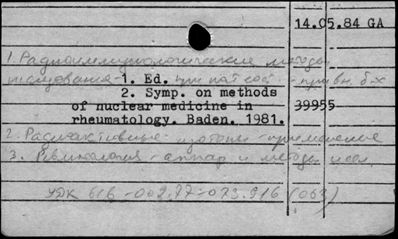 14.05.84 GA
1. Радиоиммунологические методы
исследования - 1. Ed. при пат сост - ревм. б-х
2. Symp. on methods
of nuclear medicine in 39955
rheumatology. Baden. 1981.
2. Радиоактивные изотопы - применение
3. Ревматология - аппар и методы иссл.
УДК 616-002.77-073.916 (063)